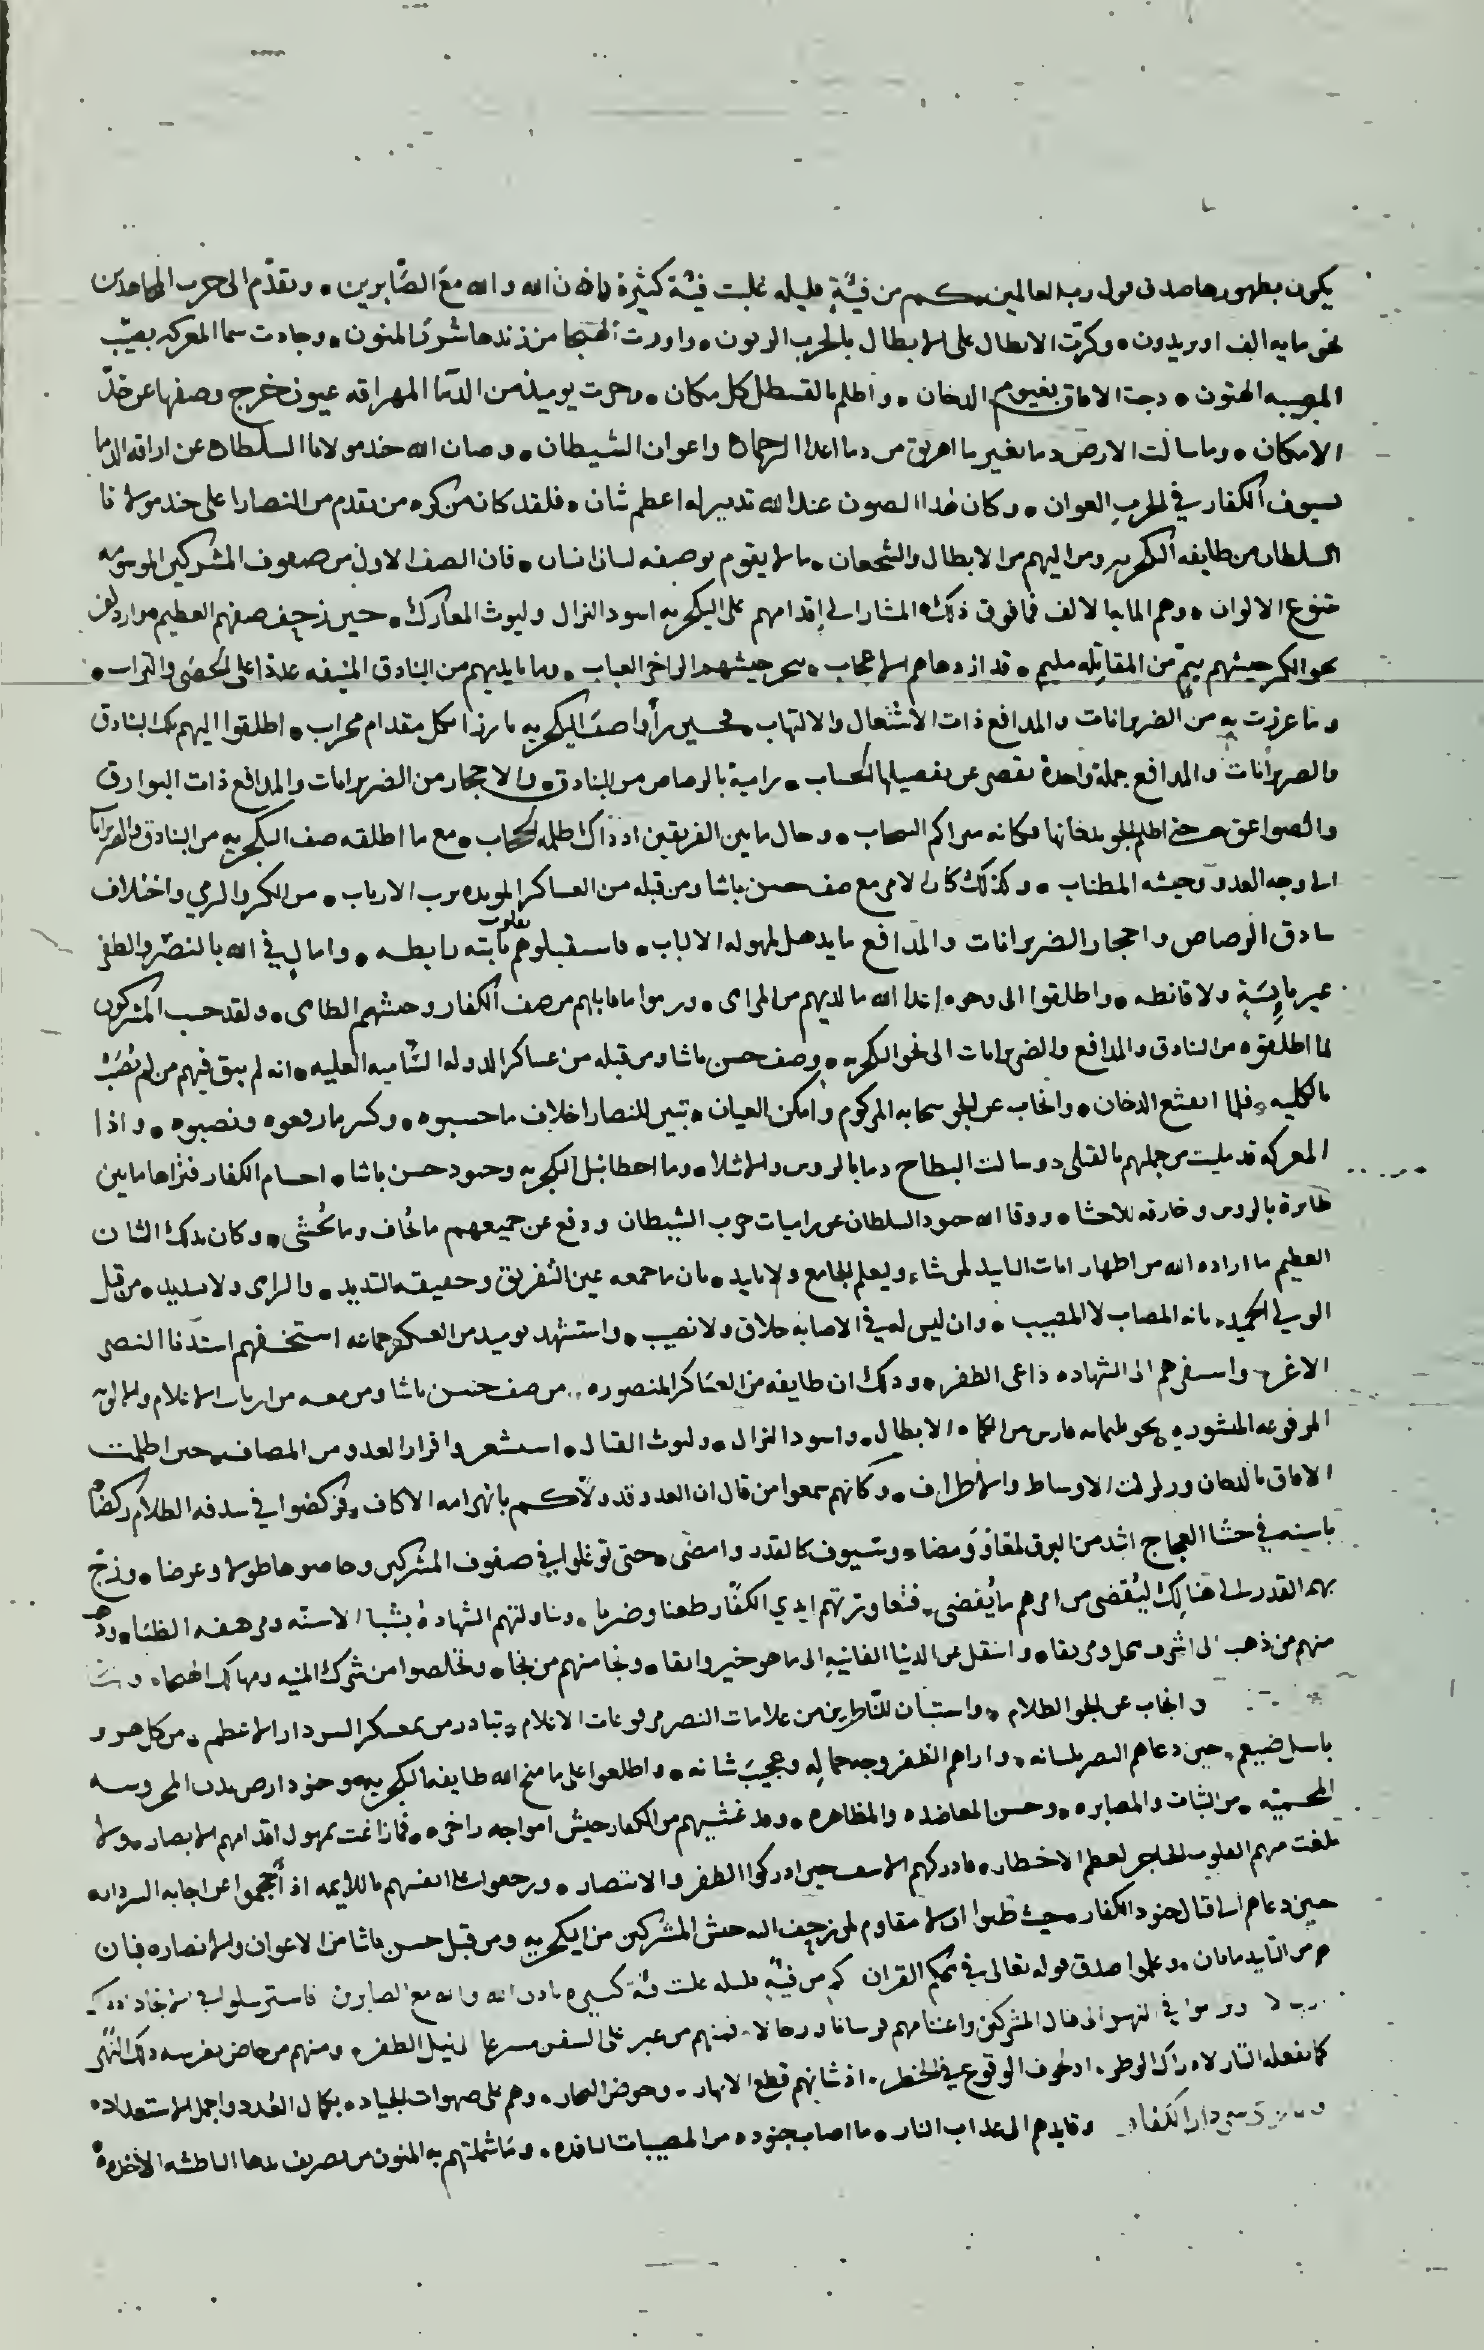 يكون بظهورها صدق قول رب العالمين كم من فئةٍ قليله غلبت فئة كثيرة باذن الله والله مع الصّابرين ۰ وتقدّم الى حرب المجاهدين
نحو مايه الف او يزيدون ۰ وكرّت الابطال على الابطال بالحرب الزبون ۰ واورت الهيجا من زندها شرر المنون ۰ وجادت سما المعركه بصيّب
المصيبه الهتون ۰ ودجت الافاق بغيوم الدخان ۰ واظلم بالقسطل كل مكان ۰ وجرت يوميذ من الدّما المهراقه عيون خرج وصفها عن حدّ
الامكان ۰ وما سالت الارض دما بغير ما اهريق من دما اعدا الرحمان واعوان الشيطان ۰ وصان الله جند مولانا السلطان عن اراقه الدما
بسيوف الكفار في الحرب العوان ۰ وكان لهذا الصون عند الله تدبير له اعظم شان ۰ فلقد كان من كره من تقدم من النصارا على جند مولانا
السلطان من طايفه اليكجريه ومن اليهم من الابطال والشجعان ۰ ما لا يقوم بوصفه لسان انسان ۰ فان الصف الاول من صفوف المشركين الموسومه
بتنوع الالوان ۰ وهم المايه الالف فما فوق ذلك المشار الى إقدامهم على اليكجريه اسود النزال وليوث المعارك ۰ حين زحف صفهم العظيم
نحو اليكجريه من المقاتله مليم ۰ قد ازدهاهم الاعجاب ۰ ببحر جيشهم الزاخر العباب ۰ وما بايديهم من البنادق المنيفه عددا على الحصى والتراب ۰
وما عززت به من الضربزانات والمدافع ذات الاشتعال والالتهاب ۰ فحسين رأوا صف اليكجريه بارزا بكل مقدام محراب ۰ اطلقوا اليهم تلك البنادق
والضربزانات والمدافع جملة واحدة تقصر عن تفصيلها الحساب ۰ رامية بالرصاص من البنادق ۰ والاحجار من الضربزانات والمدافع ذات البوارق
والصواعق حتى اظلم الجو بدخانها وكانه متراكم السحاب ۰ وحال ما بين الفريقين اذ ذاك ظلمه الحجاب ۰ مع ما اطلقه صف اليكجريه من البنادق والضربزانات
الى وجه العدو وجيشه المطناب ۰ وكذلك كان الامر مع صف حسن باشا ومن قبله من العساكر المويده برب الارباب ۰ من الكر والرمي واختلاف
بنادق الرصاص واحجار الضربزانات والمدافع ما يدهل لهوله الالباب ۰ فاستقبلوهم بقلوب ثابته رابطه ۰ وامال في الله بالنصر والظفر
غير يائسة ولا قانطه ۰ واطلقوا الى وجوه اعدا الله ما لديهم من المرامى ۰ ورموا ما قابلهم من صف الكفار وجيشهم الطامى ۰ ولقد حسب المشركون
لما اطلقوه من البنادق والمدافع والضربزانات الى نحو اليكجريه ۰ وصف حسن باشا ومن قبله من عساكر الدوله السّاميه العليه ۰ انه لم يبق فيهم من لم يُصَبْ
بالكليه ۰ فلما انقشع الدخان ۰ وانجاب عن الجو سحابه المركوم وامكن العيان ۰ تبين للنصارا خلاف ما حسبوه ۰ وكسر ما رفعوه ونصبوه ۰ واذا
المعركه قد مليت من جملهم بالقتلى ۰ وسالت البطاح دما بالروس والاشلا ۰ وما اخطا نبل اليكجريه وجنود حسن باشا ۰ اجسام الكفار فتراها ما بين
طايرة بالروس وخارقه للاحشا ۰ ووقا الله جنود السلطان عن راميات حزب الشيطان ودفع عن جميعهم ما يُخاف وما يُخشى ۰ وكان بذلك الشان
العظيم ما اراده الله من اظهار ايات التاييد لمن شاء وليعلم الجامع ولا تاييد ۰ بان ما جمعه عين التفريق وحقيقه التبديد ۰ والرامى ولا تسديد ۰ من قبل
الولي الحميد ۰ بانه المصاب لا المصيب ۰ وان ليس له في الاصابه خلاق ولا نصيب ۰ واستشهد يوميذ من العسكر جماعه استخفهم استدنا النصر
الاغر ۰ واستفزهم الى الشهاده داعى الظفر ۰ وذلك ان طايفه من العساكر المنصوره ۰ من صف حسن باشا ومن معه من ارباب الاعلام والالويه
المرفوعه المنشوره ۰ نحو ثلثمايه فارس من الكماه الابطال ۰ واسود النزال ۰ وليوث القتال ۰ استشعروا فرار العدو من المصاف حين اظلمت
الافاق بالدخان وزلزلت الاوساط والاطراف ۰ وكانهم سمعوا من قال ان العدو قد ولّاكم بانهزامه الاكتاف ۰ فركضوا في سدفه الظلام ركضا ۰
باسنه في حشا العجاج اشد من البرق لمعا وومضا ۰ وسيوف كالقدر وامضى ۰ حتى توغلوا في صفوف المشركين وخاضوها طولا وعرضا ۰ وزجّ
بهم القدر الى هنالك ليُقضى من امرهم ما يُقضى ۰ فتعاورتهم ايدي الكفّار طعنا وضربا ۰ وناولتهم الشهادة بشبا الاسنّه ومرهفه الظبا
منهم من ذهب الى اشرف محل ومرتقا ۰ وانتقل عن الدنيا الفانيه الى ما هو خير وابقا ۰ ونجا منهم من نجا ۰ وتخلصوا من شرك المنيه ومهالك الهيجا ۰
وانجاب عن الجو الظلام ۰ واستبان للنّاظرين من علامات النصر مرفوعات الاعلام ۰ تبادر من معسكر السردار الاعظم ۰ من كل هو و
باسل ضيغم ۰ حين دعاهم النصر بلسانه ۰ واراهم الظفر وجه جماله وعجيبَ شانه ۰ واطلعوا على ما منح الله طايفه اليكجريه وجنود ارض بدن المحروسه
المحميّه ۰ من الثبات والمصابره ۰ وحسن المعاضده والمظاهره ۰ وقد غشيهم من الكفار جيش امواجه زاخره ۰ فما زاغت لمهول اقدامهم الابصار ۰ ولا
بلغت منهم القلوب الحناجر لعظم الاخطار ۰ فادركهم الاسف حين ادركوا الظفر والانتصار ۰ ورجعوا على انفسهم باللايمه اذ أحجموا عن اجابه السردار
حين دعاهم الى قتال جنود الكفار ۰ حيث ظنوا ان لا مقاوم لمن زحف اليه جيش المشركين من اليكجريه ومن قبل حسن باشا من الاعوان والانصار فبان
لهم من التاييد ما بان ۰ وعلموا صدق قوله تعالى في محكم القران كم من فيةٍ قليله غلبت فئة كثيره باذن الله والله مع الصابرين فاسترسلوا في
وترموا في النهر الى قتال المشركين واغتنامهم فرسانا ورجالا ۰ فمنهم من عبر على السفن مسرعا لنيل الظفر ۰ ومنهم من خاض بفرسه ذلك النهر
كما يفعله التتار لادراك الوطر ۰ او لخوف الوقوع في الخطر ۰ اذ شانهم قطع الانهار ۰ وخوض البحار ۰ وهم على صهوات الجياد ۰ بكمال العُدد واجمل الاستعداد ۰
سردار الكفار وقايدهم الى عذاب النار ۰ ما اصاب جنوده من المصيبات النافذه ۰ وما شملتهم به المنون من تصريف يدها الباطشه الاخذه ۰